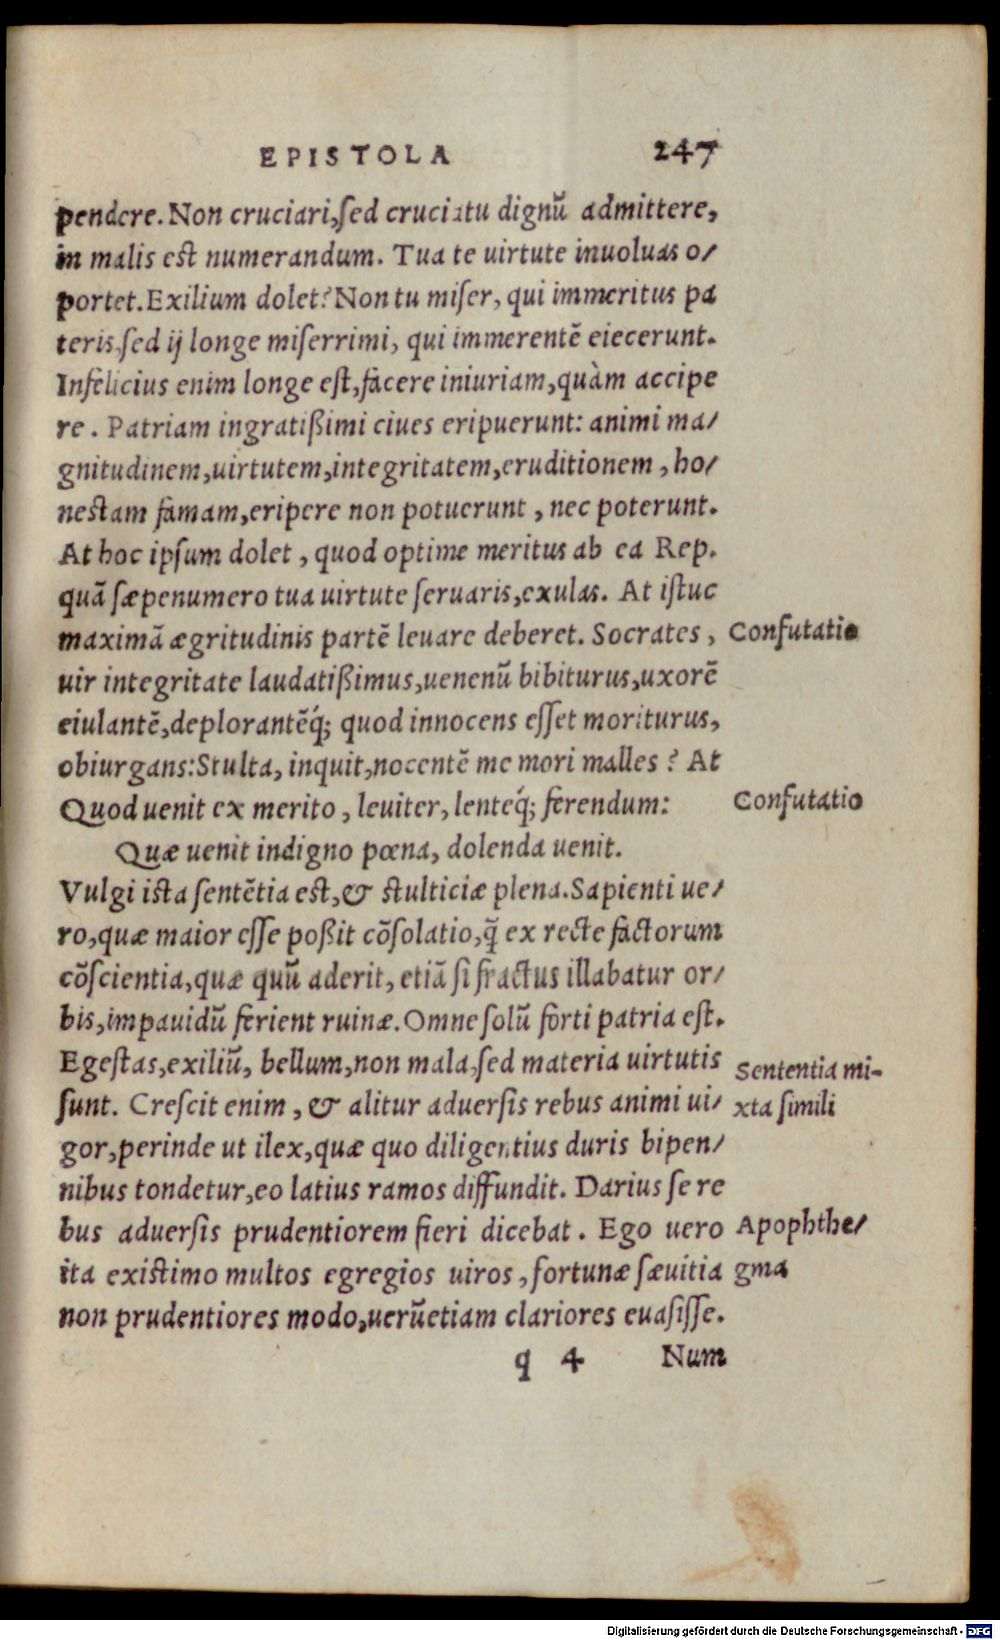 EPISTOLA 247
pendere. Non cruciari, sed cruciatu dignũ admittere,
in malis est numerandum. Tua te uirtute inuoluas o/
portet. Exilium dolet? Non tu miser, qui immeritus pa
teris, sed ij longe miserrimi, qui immerentẽ eiecerunt.
Infelicius enim longe est, facere iniuriam, quàm accipe
re. Patriam ingratißimi ciues eripuerunt: animi ma/
gnitudinem, uirtutem, integritatem, eruditionem, ho/
nestam famam, eripere non potuerunt, nec poterunt.
At hoc ipsum dolet, quod optime meritus ab ea Rep.
quã sæpenumero tua uirtute seruaris, exulas. At istuc
maximã ægritudinis partẽ leuare deberet. Socrates,
Confutatio
uir integritate laudatißimus, uenenũ bibiturus, uxorẽ
eiulantẽ, deplorantẽq́; quod innocens esset moriturus,
obiurgans: Stulta, inquit, nocentẽ me mori malles? At
Quod uenit ex merito, leuiter, lenteq́; ferendum:
Confutatio
Quæ uenit indigno pœna, dolenda uenit.
Vulgi ista sentẽtia est, & stulticiæ plena. Sapienti ue/
ro, quæ maior esse poßit cõsolatio, q̃ ex recte factorum
cõscientia, quæ quũ aderit, etiã si fractus illabatur or/
bis, impauidũ ferient ruinæ. Omne solũ forti patria est.
Egestas, exiliũ, bellum, non mala, sed materia uirtutis
Sententia mi-
sunt. Crescit enim, & alitur aduersis rebus animi ui/
xta simili
gor, perinde ut ilex, quæ quo diligentius duris bipen/
nibus tondetur, eo latius ramos diffundit. Darius se re
bus aduersis prudentiorem fieri dicebat. Ego uero
Apophthe/
ita existimo multos egregios uiros, fortunæ sæuitia
gma
non prudentiores modo, uerũetiam clariores euasisse.
q 4 Num
Digitalisierung gefördert durch die Deutsche Forschungsgemeinschaft - DFG